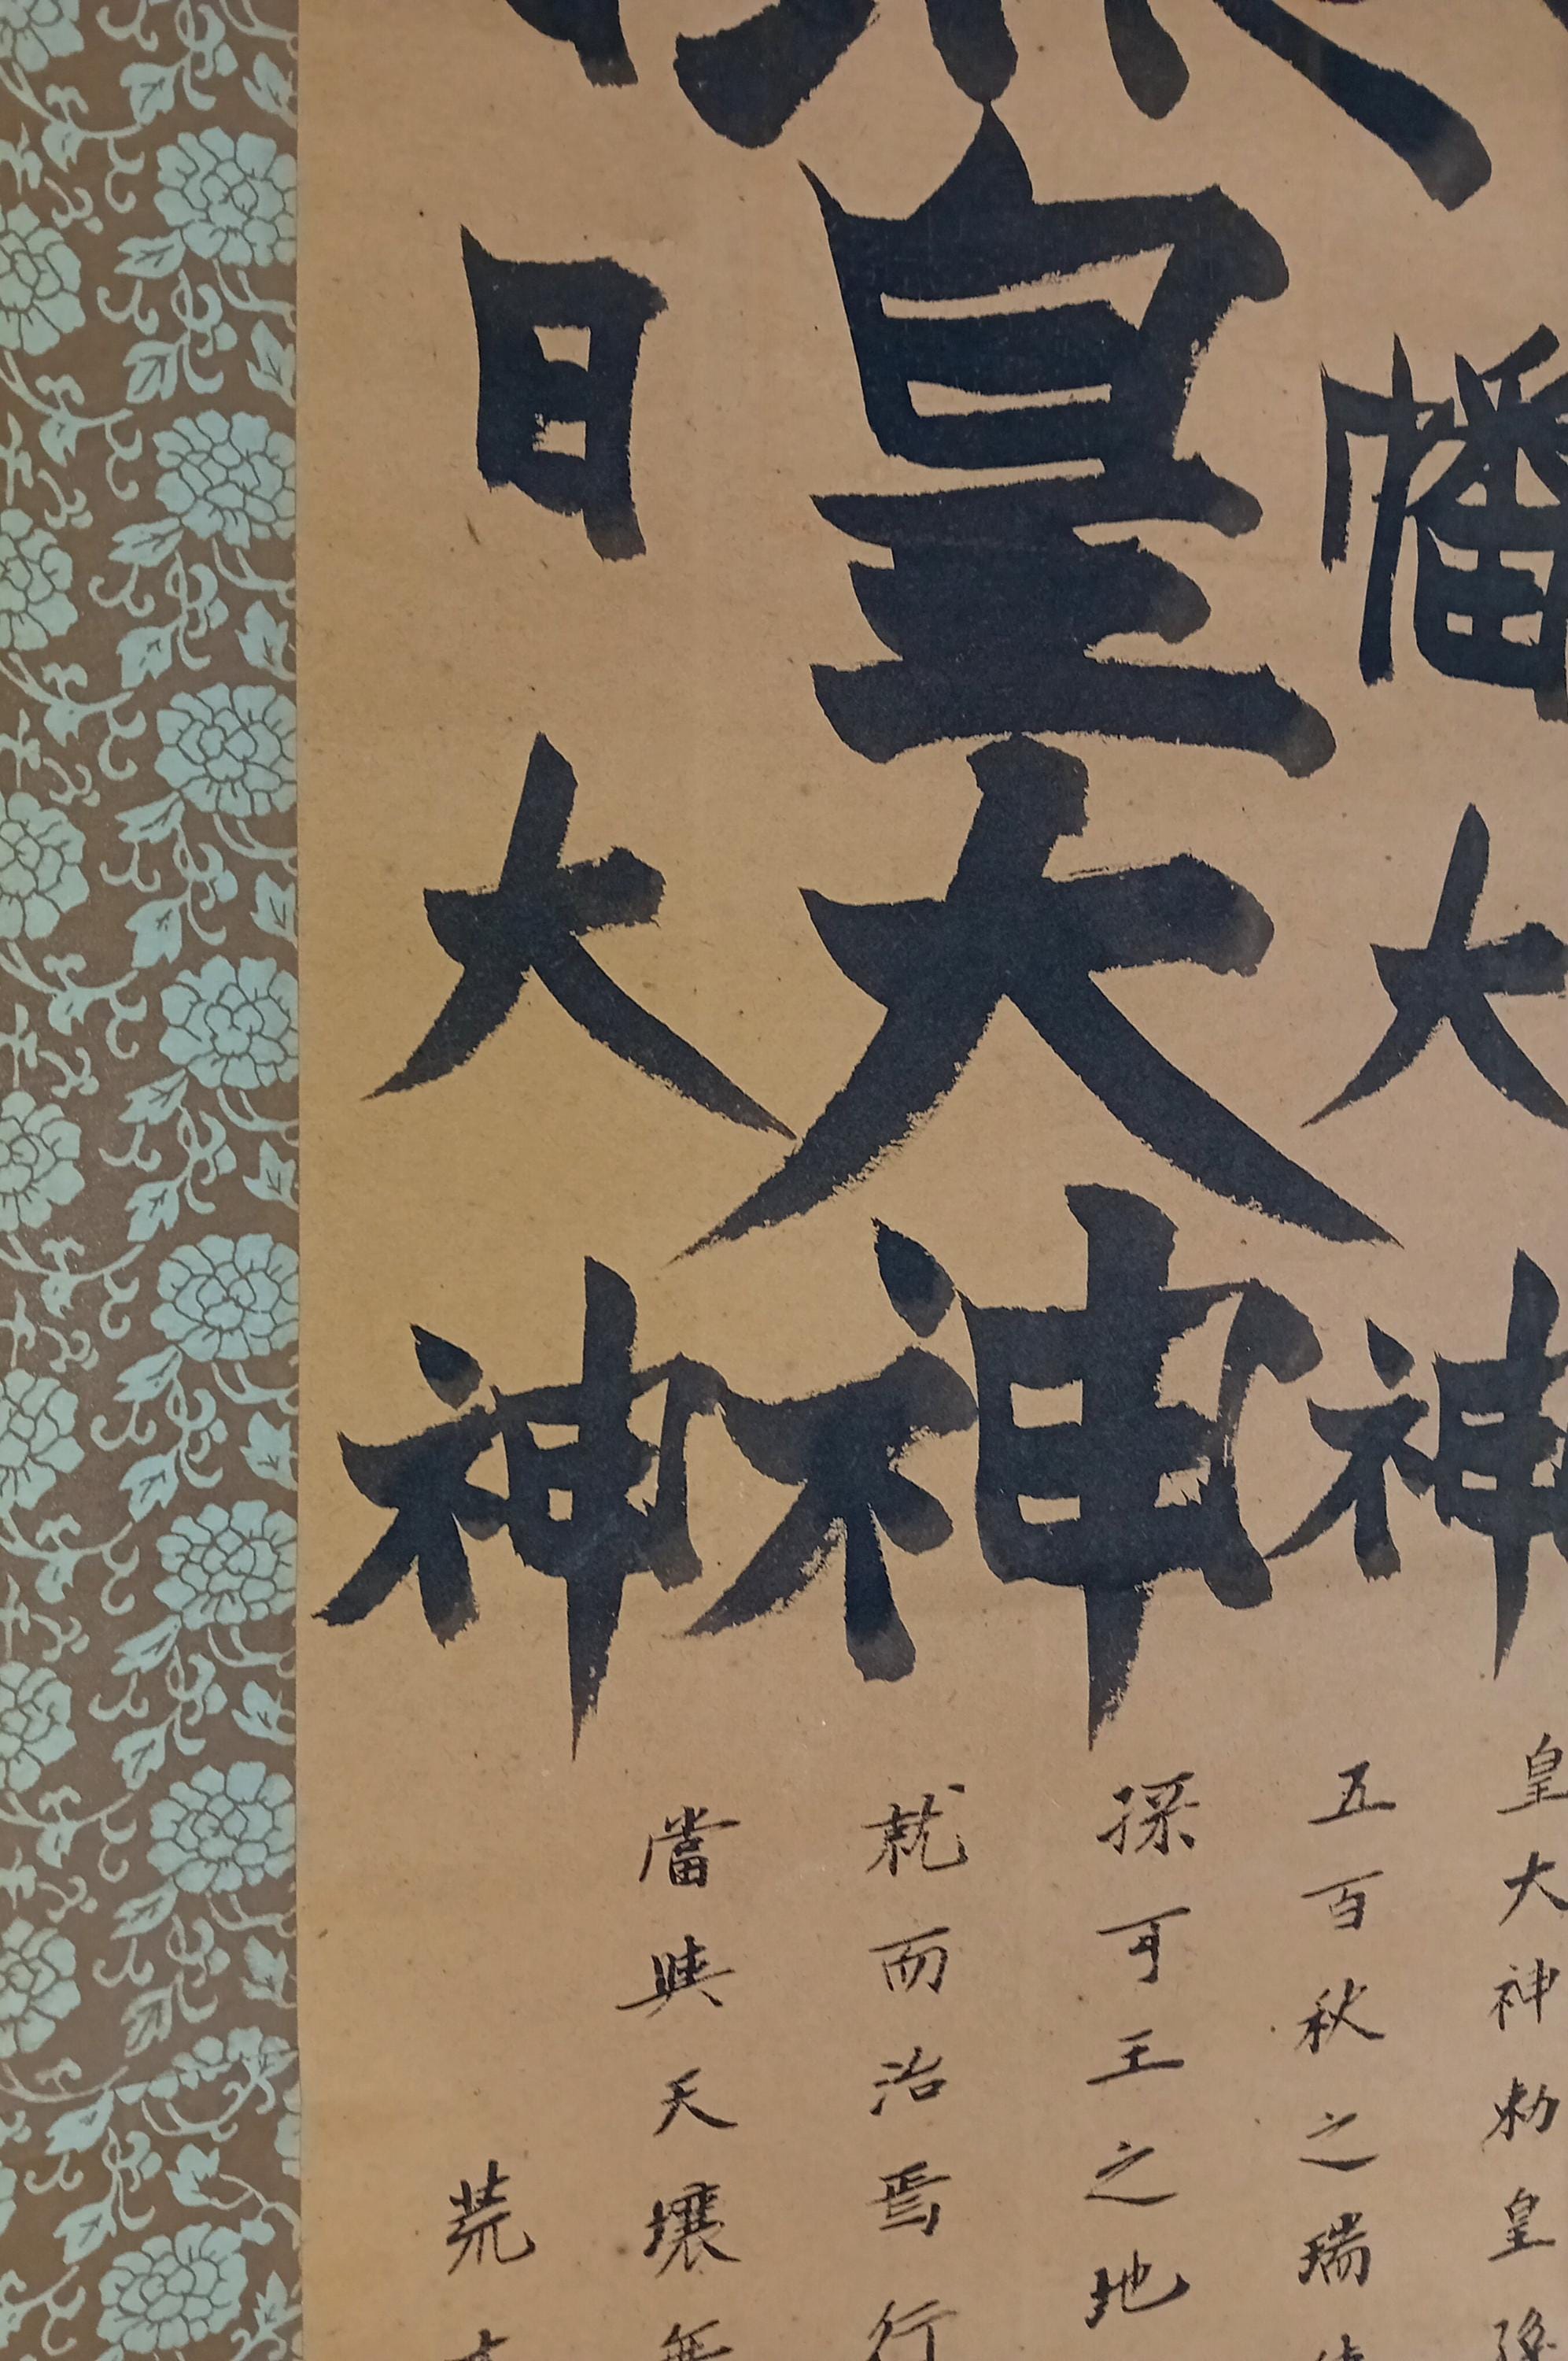 幡大神
皇大神
日大神
皇大神勅皇孫
五百秋之瑞
孫可王之地
就而治焉行
當與天壤無
荒